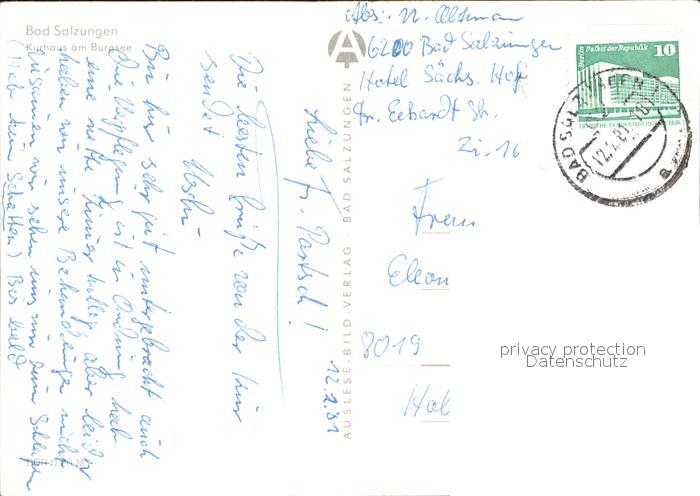 Bad Salzungen
Kurhaus am Burgsee
Abs: U. Altmann
6200 Bad Salzungen
Hotel Sächs. Hof
Dr. Eckardt Str.
Zi. 16
Berlin Palast der Republik 10
BAD SALZUNGEN
12.2.81
Frau
8019
Hal
privacy protection
Datenschutz
AUSLESE-BILD-VERLAG · BAD SALZUNGEN
12.2.81
Liebe Fr. Partsch!
Die besten Grüße von der Kur
sendet
Bin hier sehr gut untergebracht auch
die Verpflegung ist in Ordnung, hab
eine nette Zimmer aber leider
haben wir unsere Behandlungen nicht
zusammen wir sehen uns nur beim Schlafen
(Hab kein Schatten) Bis bald